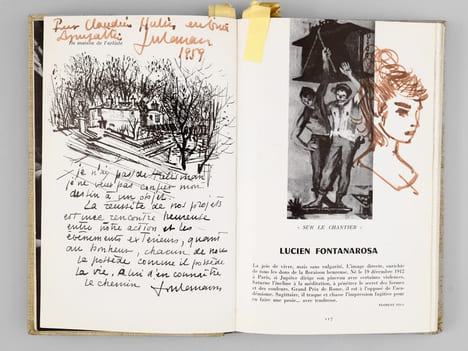 Pour Claudius Hulis
1959
La maison de l'artiste
Je n'ai pas de talisman
je ne veux pas confier mon
destin à un objet.
La réussite de nos projets
est une rencontre heureuse
entre notre action et les
événements extérieurs, quant
au bonheur, chacun de nous
le possède comme il possède
la vie. A lui d'en connaître
le chemin
« SUR LE CHANTIER »
LUCIEN FONTANAROSA
La joie de vivre, mais sans vulgarité. L'image directe, enrichie
de tous les dons de la floraison heureuse. Né le 19 décembre 1912
à Paris, si Jupiter dirige son pinceau avec certaines violences,
Saturne l'incline à la méditation, à pénétrer le secret des formes
et des couleurs. Grand Prix de Rome, il est à l'opposé de l'aca-
démisme. Sagittaire; il traque et chasse l'impression fugitive pour
en faire une proie... avec tendresse.
FLORENT FELS
117